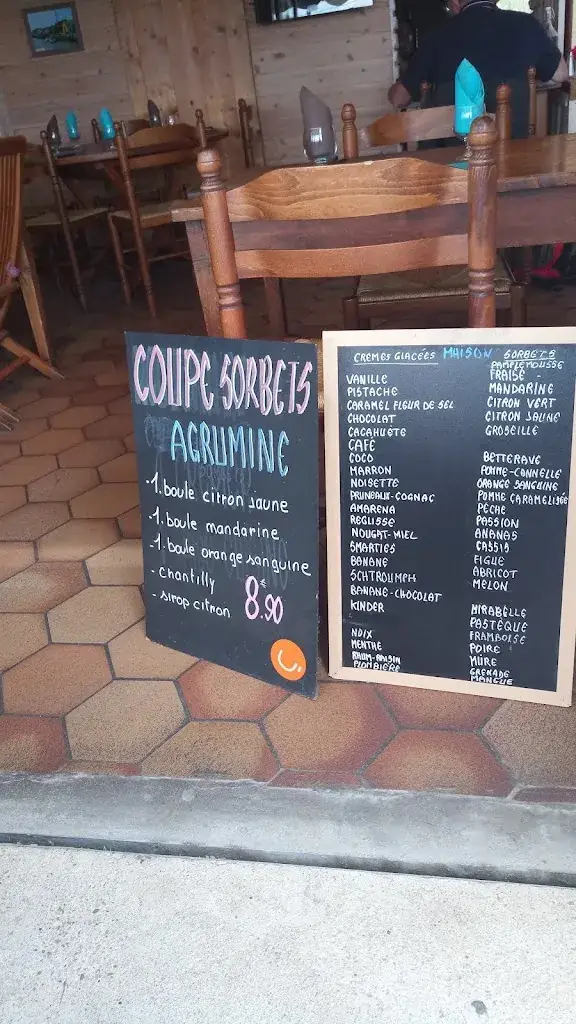 COUPE SORBETS
AGRUMINE
-1. boule citron jaune
-1. boule mandarine
-1. boule orange sanguine
- chantilly
- sirop citron
8.€90
CREMES GLACÉES MAISON SORBETS
VANILLE
PISTACHE
CARAMEL FLEUR DE SEL
CHOCOLAT
CACAHUÈTE
CAFÉ
COCO
MARRON
NOISETTE
PRUNEAUX-COGNAC
AMARENA
REGLISSE
NOUGAT-MIEL
SMARTIES
BANANE
SCHTROUMPH
BANANE-CHOCOLAT
KINDER
NOIX
MENTHE
RHUM-RAISIN
PLOMBIÈRE
PAMPLEMOUSSE
FRAISE -
MANDARINE
CITRON VERT
CITRON JAUNE
GROSEILLE
BETTERAVE
POMME-CANNELLE
ORANGE SANGUINE
POMME CARAMELISÉE
PÊCHE
PASSION
ANANAS
CASSIS
FIGUE
ABRICOT
MELON
MIRABELLE
PASTÈQUE
FRAMBOISE
POIRE
MÛRE
GRENADE
MANGUE